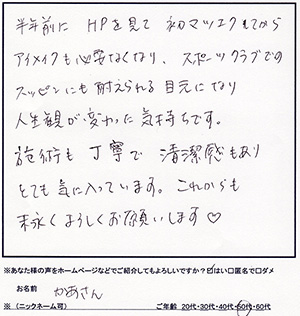 半年前に HPを見て 初マツエクしてから
アイメイクも必要なくなり、スポーツクラブでの
スッピンにも耐えられる目元になり
人生観が変わった気持ちです。
施術も丁寧で 清潔感もあり
とても気に入っています。これからも
末永くよろしくお願いします♡
※あなた様の声をホームページなどでご紹介してもよろしいですか？☑はい□匿名で□ダメ
お名前 かあさん
※（ニックネーム可） ご年齢 20代・30代・40代・50代・60代